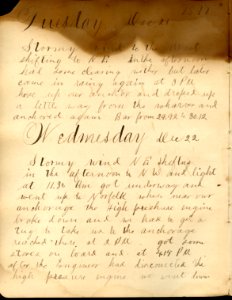 Tuesday Dec 21
Stormy wind to the
shifting to N E in the afternoon
had some clearing wether but later
came in rainy again at 3 PM
hove up our anchor and droped up
a little way from the
anchored again Bar from 29.92 to 30.12
Wednesday Dec 22
Stormy wind N E shifting
in the afternoon to N W and light
at 11.30 AM got underway and
went up to Norfolk when near our
anchorage the high preshure engine
broke down and we had to get a
tug to take us to the anchorage
reached there at 2 PM got some
stores on board and at 4.15 PM
after the Engineer had disconected the
high preshure engine we went down